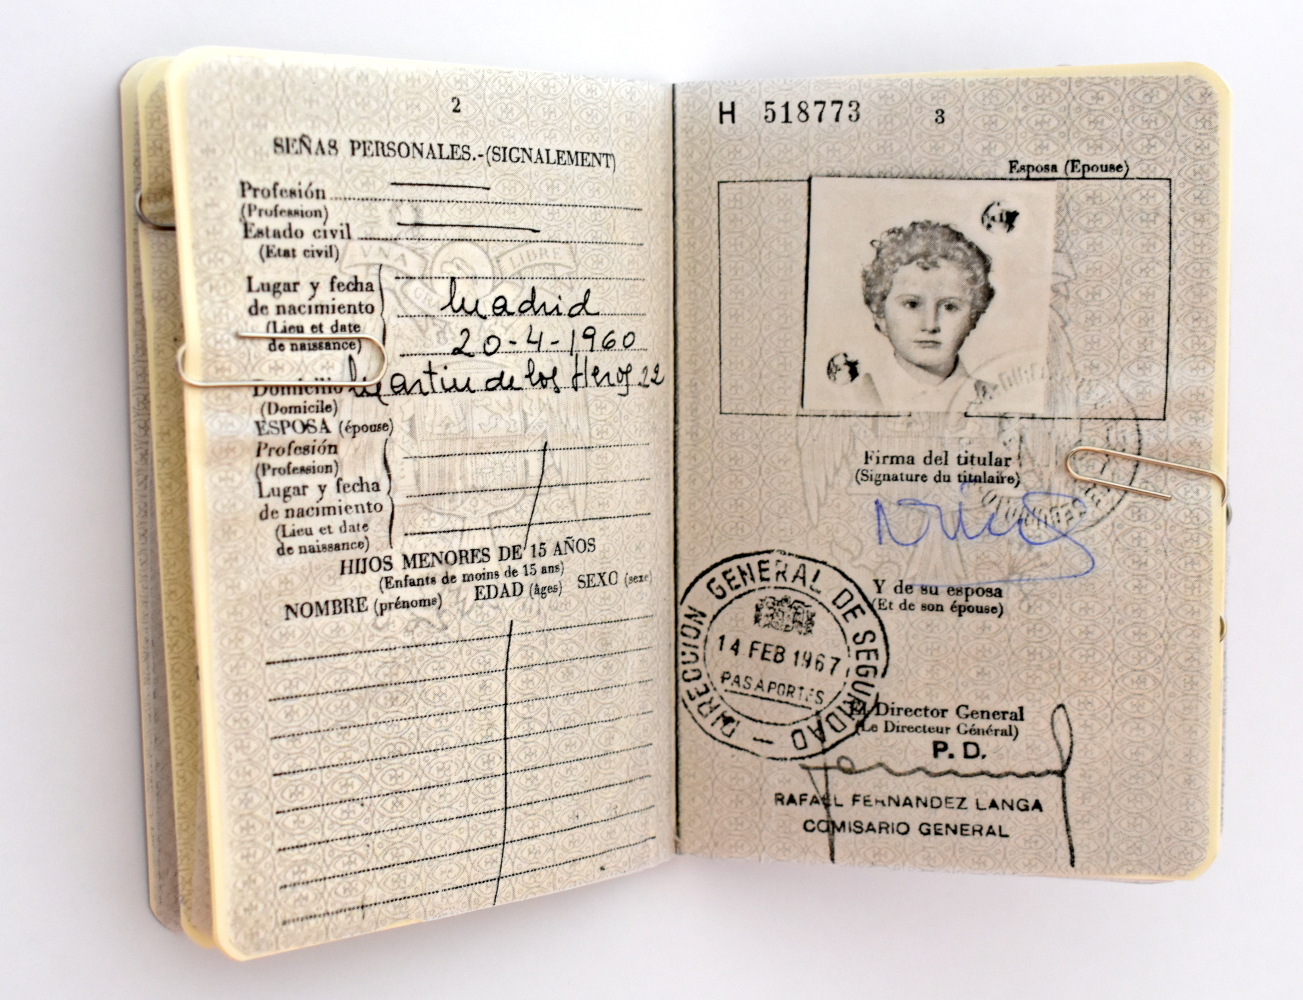 2
SEÑAS PERSONALES.-(SIGNALEMENT)
Profesión
(Profession)
Estado civil
(Etat civil)
UNA LIBRE
GRA
Lugar y fecha
de nacimiento
(Lieu et date
de naissance)
Madrid
20-4-1960
Domicilio Martin de los Heros 22
(Domicile)
ESPOSA (épouse)
Profesión
(Profession)
Lugar y fecha
de nacimiento
(Lieu et date
de naissance)
HIJOS MENORES DE 15 AÑOS
(Enfants de moins de 15 ans)
NOMBRE (prénoms) EDAD (âges) SEXO (sexe)
H 518773 3
Esposa (Epouse)
Firma del titular
(Signature du titulaire)
Y de su esposa
(Et de son épouse)
DIRECCION GENERAL DE SEGURIDAD
14 FEB 1967
PASAPORTES
El Director General
(Le Directeur Général)
P. D.
RAFAEL FERNANDEZ LANGA
COMISARIO GENERAL